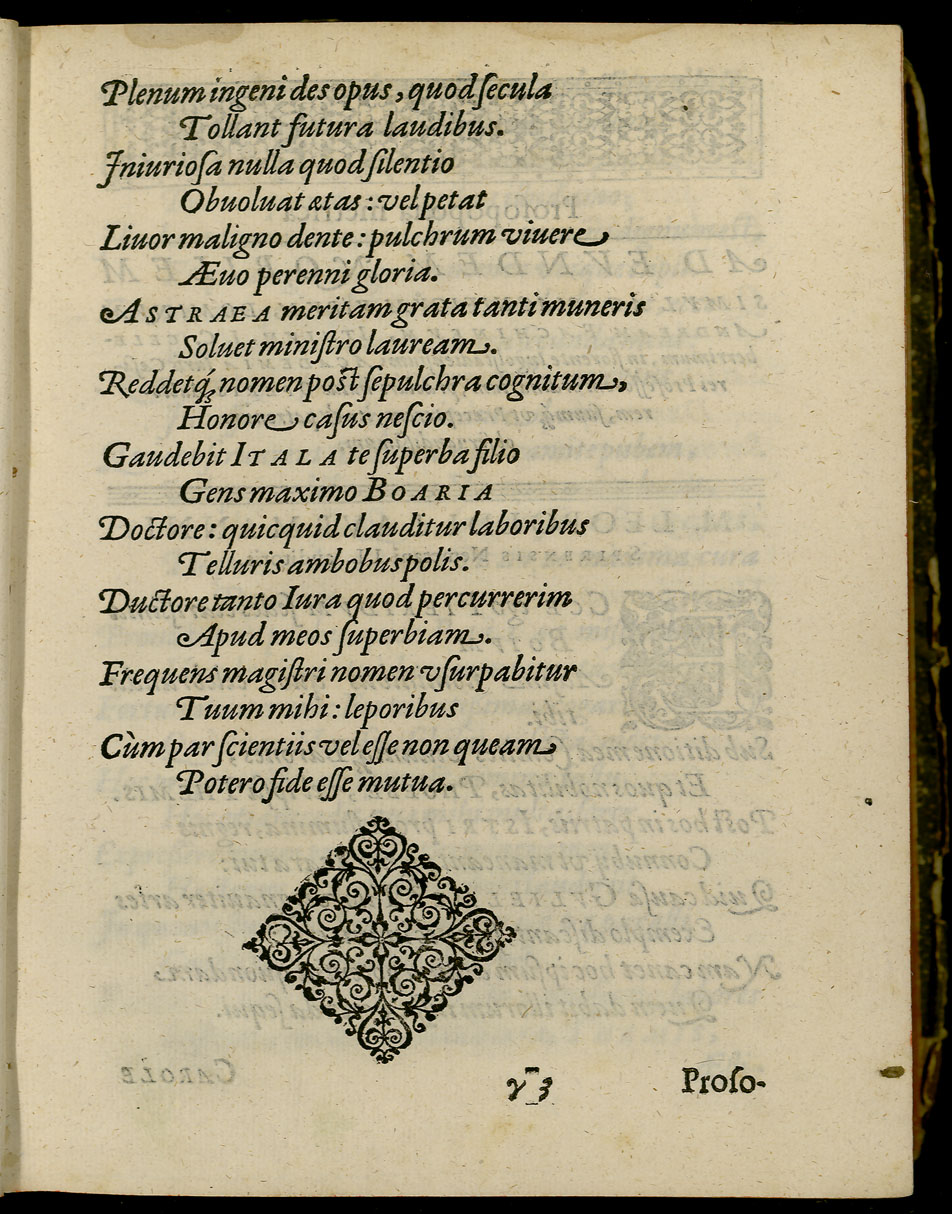 Plenum ingeni des opus, quod ſecula
Tollant futura laudibus.
Iniurioſa nulla quod ſilentio
Obuoluat ætas: vel petat
Liuor maligno dente: pulchrum viuere
Æuo perenni gloria.
ASTRAEA meritam grata tanti muneris
Soluet miniſtro lauream.
Reddetq́; nomen poſt ſepulchra cognitum,
Honore caſus neſcio.
Gaudebit ITALA te ſuperba filio
Gens maximo BOARIA
Doctore: quicquid clauditur laboribus
Telluris ambobus polis.
Ductore tanto Iura quod percurrerim
Apud meos ſuperbiam.
Frequens magiſtri nomen vſurpabitur
Tuum mihi: leporibus
Cùm par ſcientiis vel eſſe non queam
Potero fide eſſe mutua.
γ 3 Proſo-